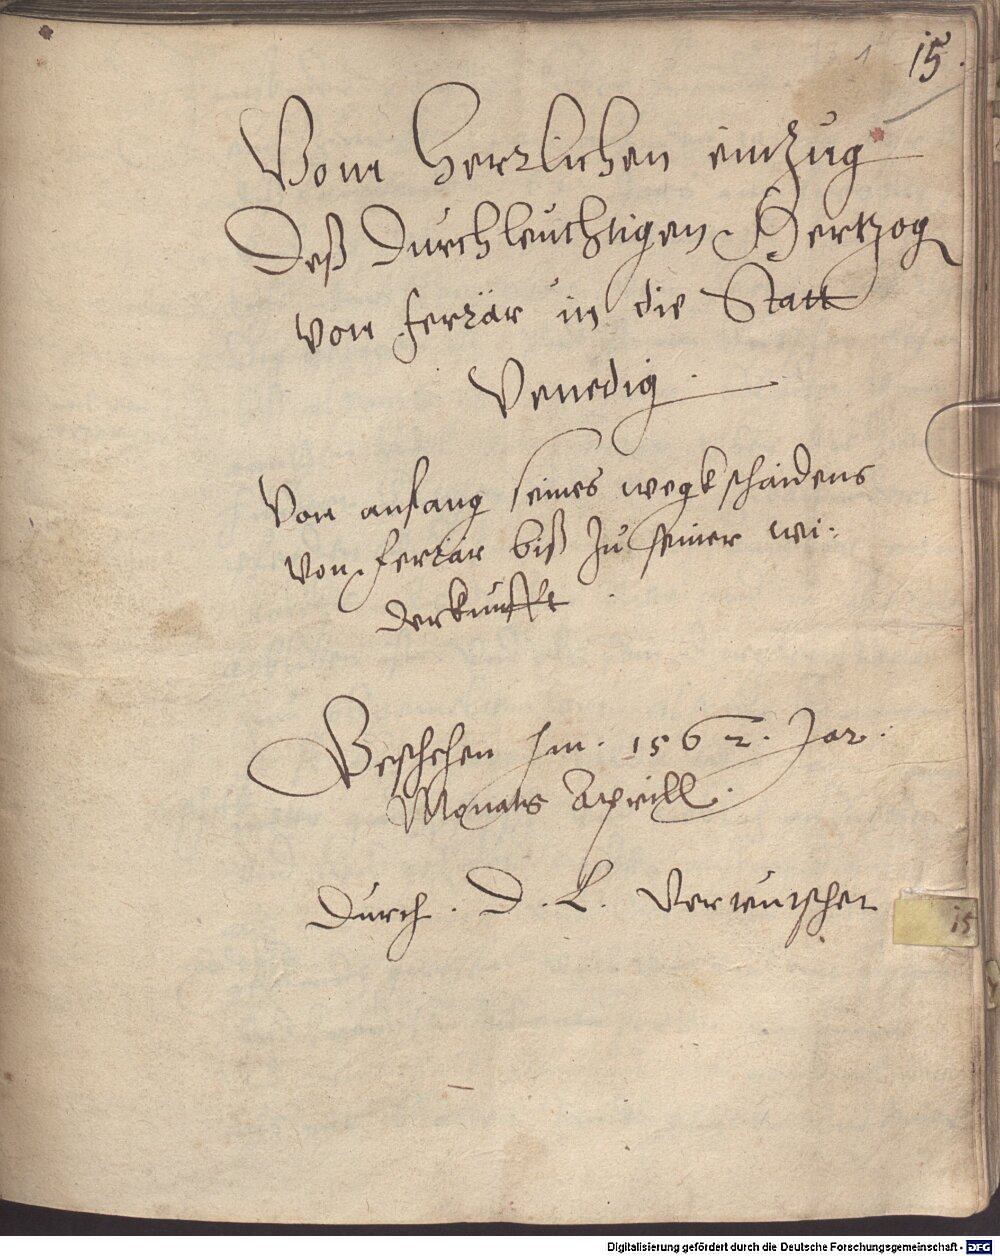 1 15.
Vom Herrlichen einzug
Deß Durchleuchtigen Hertzog
von Ferrar in die Statt
Venedig.
Von anfang seines wegkschaidens
von Ferrar biß zu seiner wi:
derkunfft
Beschehen Im. 1562. Jar.
Monats Aprill.
Durch. D. L. Verteutschet
15
Digitalisierung gefördert durch die Deutsche Forschungsgemeinschaft - DFG